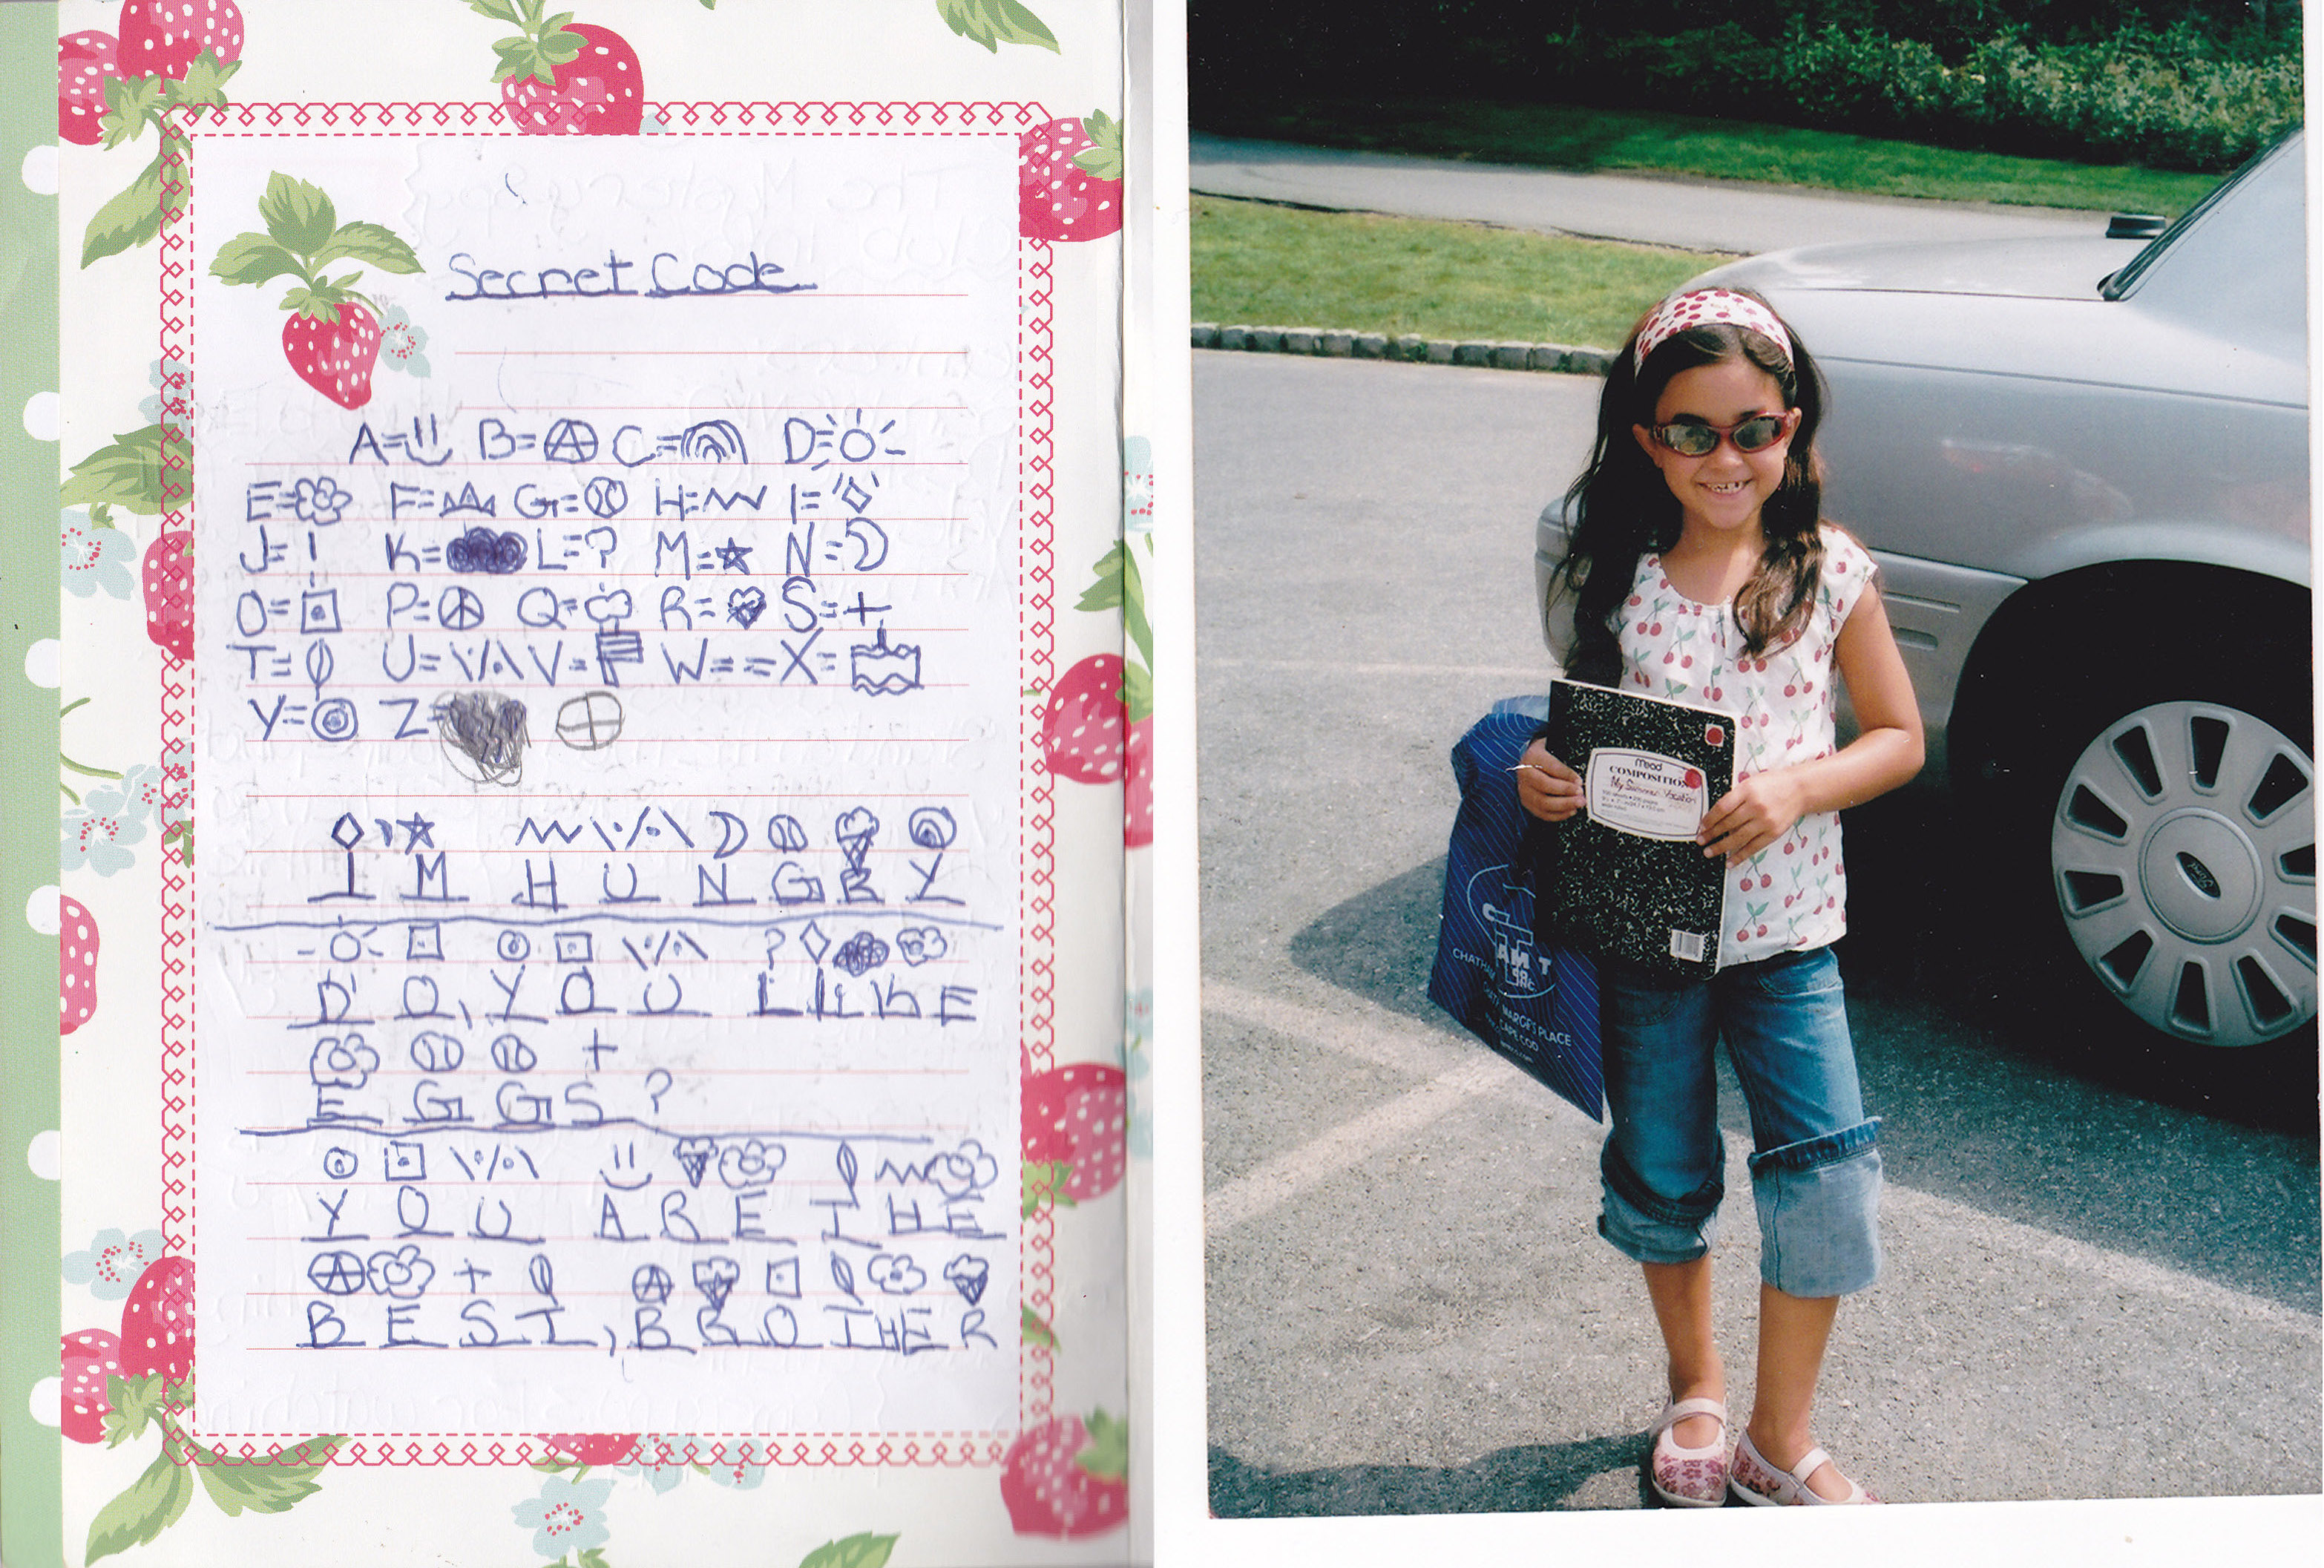 Secret Code
A= B= C= D=
E= F= G= H= I=
J=! K= L=? M= N=
O= P= Q= R= S=+
T= U= V= W== X=
Y= Z=
I ' M H U N G R Y
D O, Y O U L I K E
E G G S ?
Y O U A R E T H E
B E S T, B R O T H E R
Mead
COMPOSITION
My Summer Vacation
CHATHAM
MARGE'S PLACE
CAPE COD
Ford